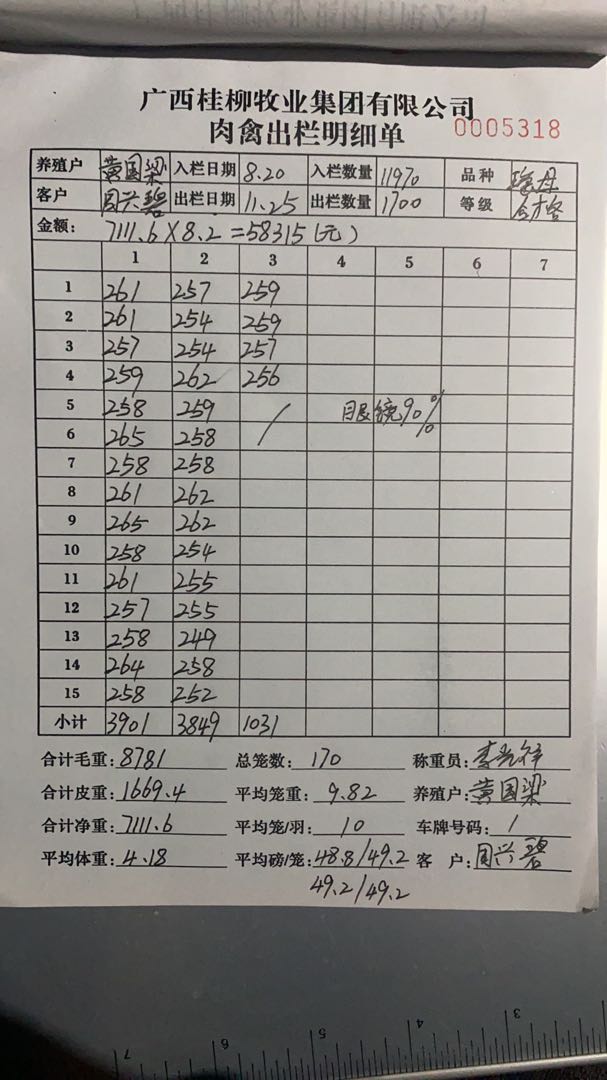 广西桂柳牧业集团有限公司
肉禽出栏明细单 0005318
养殖户 黄国梁 入栏日期 8.20 入栏数量 11970 品种 瑶丹
客户 周兴碧 出栏日期 11.25 出栏数量 1700 等级 合格
金额: 7111.6×8.2=58315(元)
1 2 3 4 5 6 7
1 261 257 259
2 261 254 259
3 257 254 257
4 259 262 256
5 258 259 / 眼镜90%
6 265 258
7 258 258
8 261 262
9 265 262
10 258 254
11 261 255
12 257 255
13 258 249
14 264 258
15 258 252
小计 3901 3849 1031
合计毛重: 8781 总笼数: 170 称重员:
合计皮重: 1669.4 平均笼重: 9.82 养殖户: 黄国梁
合计净重: 7111.6 平均笼/羽: 10 车牌号码: /
平均体重: 4.18 平均磅/笼: 48.8/49.2 客 户: 周兴碧
49.2/49.2
7 6 5 4 3